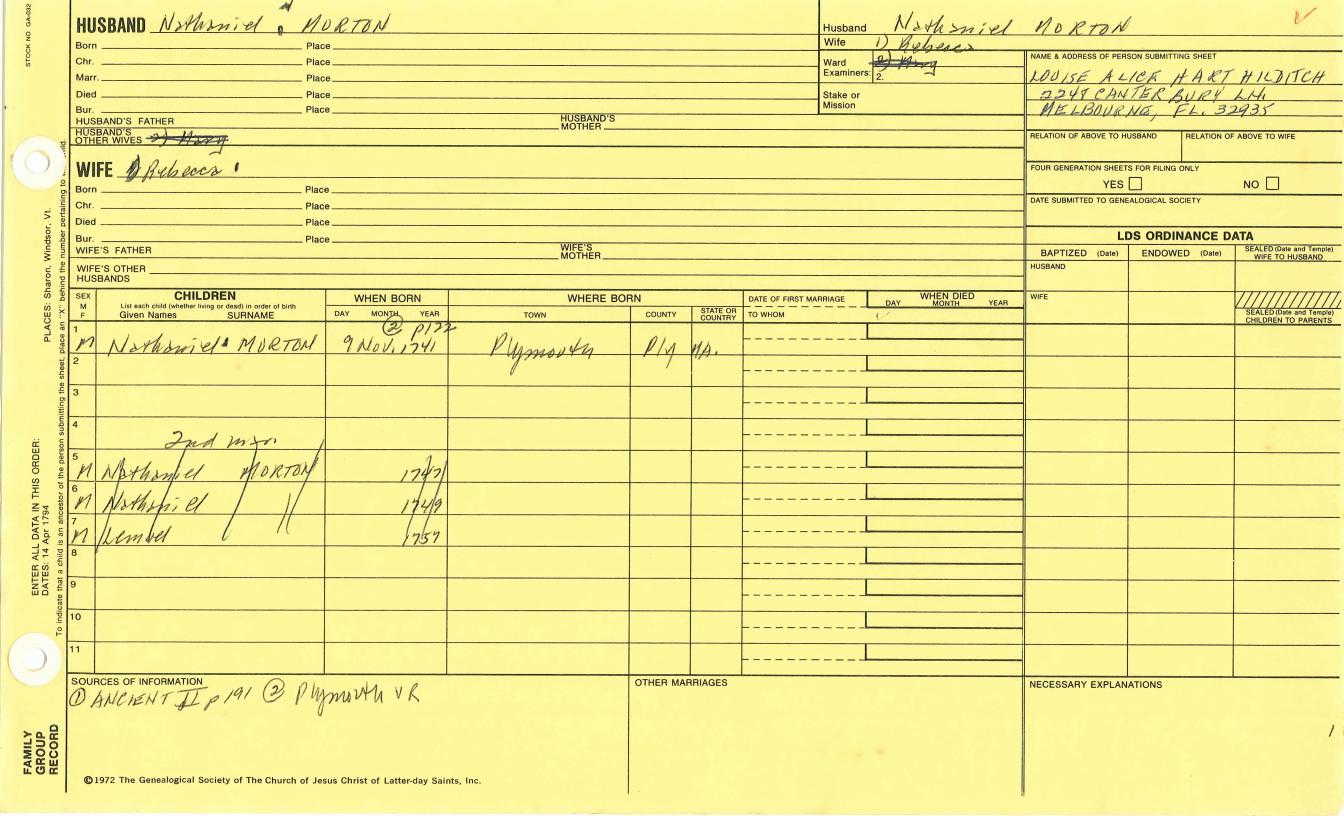 STOCK NO. GA-032
HUSBAND Nathaniel MORTON
Born Place
Chr. Place
Marr. Place
Died Place
Bur. Place
HUSBAND'S FATHER HUSBAND'S MOTHER
HUSBAND'S OTHER WIVES 2) Mary
WIFE 1) Rebecca
Born Place
Chr. Place
Died Place
Bur. Place
WIFE'S FATHER WIFE'S MOTHER
WIFE'S OTHER HUSBANDS
Husband Nathaniel MORTON
Wife 1) Rebecca
Ward Examiners: 2) Mary
2.
Stake or Mission
NAME & ADDRESS OF PERSON SUBMITTING SHEET
LOUISE ALICE HART HILDITCH
2248 CANTERBURY LN.
MELBOURNE, FL. 32935
RELATION OF ABOVE TO HUSBAND RELATION OF ABOVE TO WIFE
FOUR GENERATION SHEETS FOR FILING ONLY
YES NO
DATE SUBMITTED TO GENEALOGICAL SOCIETY
LDS ORDINANCE DATA
BAPTIZED (Date) ENDOWED (Date) SEALED (Date and Temple) WIFE TO HUSBAND
HUSBAND
WIFE
SEALED (Date and Temple) CHILDREN TO PARENTS
SEX M F
CHILDREN
List each child (whether living or dead) in order of birth
Given Names SURNAME
WHEN BORN
DAY MONTH YEAR
WHERE BORN
TOWN COUNTY STATE OR COUNTRY
DATE OF FIRST MARRIAGE
TO WHOM
WHEN DIED
DAY MONTH YEAR
② p122
1 M Nathaniel MORTON 9 Nov. 1741 Plymouth Ply MA.
2
3
4
2nd mar.
5 M Nathaniel MORTON 1747
6 M Nathaniel " 1749
7 M Lemuel 1757
8
9
10
11
SOURCES OF INFORMATION
① ANCIENT II p 191 ② Plymouth VR
OTHER MARRIAGES
NECESSARY EXPLANATIONS
1
©1972 The Genealogical Society of The Church of Jesus Christ of Latter-day Saints, Inc.
FAMILY GROUP RECORD
ENTER ALL DATA IN THIS ORDER:
DATES: 14 Apr 1794
PLACES: Sharon, Windsor, Vt.
To indicate that a child is an ancestor of the person submitting the sheet, place an "X" behind the number pertaining to child.